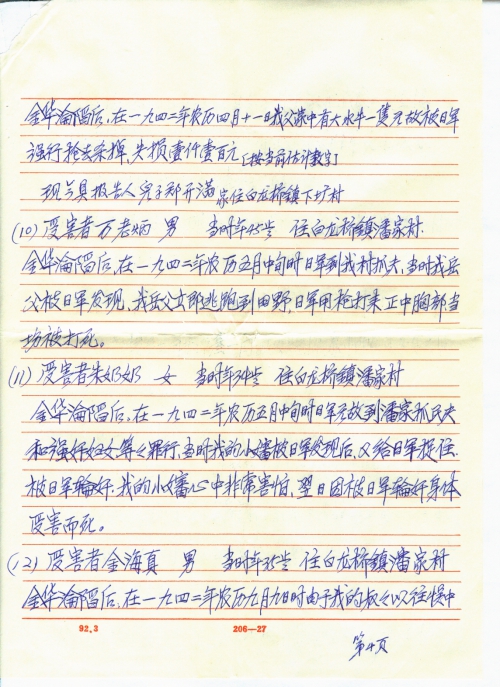 金华沦陷后,在一九四二年农历四月十一日我父家中有大水牛一隻无故被日军
强行抢去杀掉,失损壹仟壹百元[按当前估计数字]
现今具报告人兒子郑开满家住白龙桥镇下圩村
(10)受害者万老炳 男 当时年45岁 住白龙桥镇潘家村.
金华沦陷后,在一九四二年农历五月中旬时日军到我村抓夫,当时我岳
父被日军发现,我岳父立即逃跑到田野,日军用枪打来正中胸部当
场被打死。
(11)受害者朱奶奶 女 当时年34岁 住白龙桥镇潘家村
金华沦陷后,在一九四二年农历五月中旬时日军无故到潘家抓民夫
和强奸妇女等々罪行,当时我的小婶被日军发现后,又给日军捉住.
被日军輪奸.我的小婶心中非常害怕,翌日因被日军輪奸身体
受害而死。
(12)受害者金海真 男 当时年35岁 住白龙桥镇潘家村
金华沦陷后,在一九四二年农历九月九日时由于我的叔々以往惧中
92.3 206—27
第4页